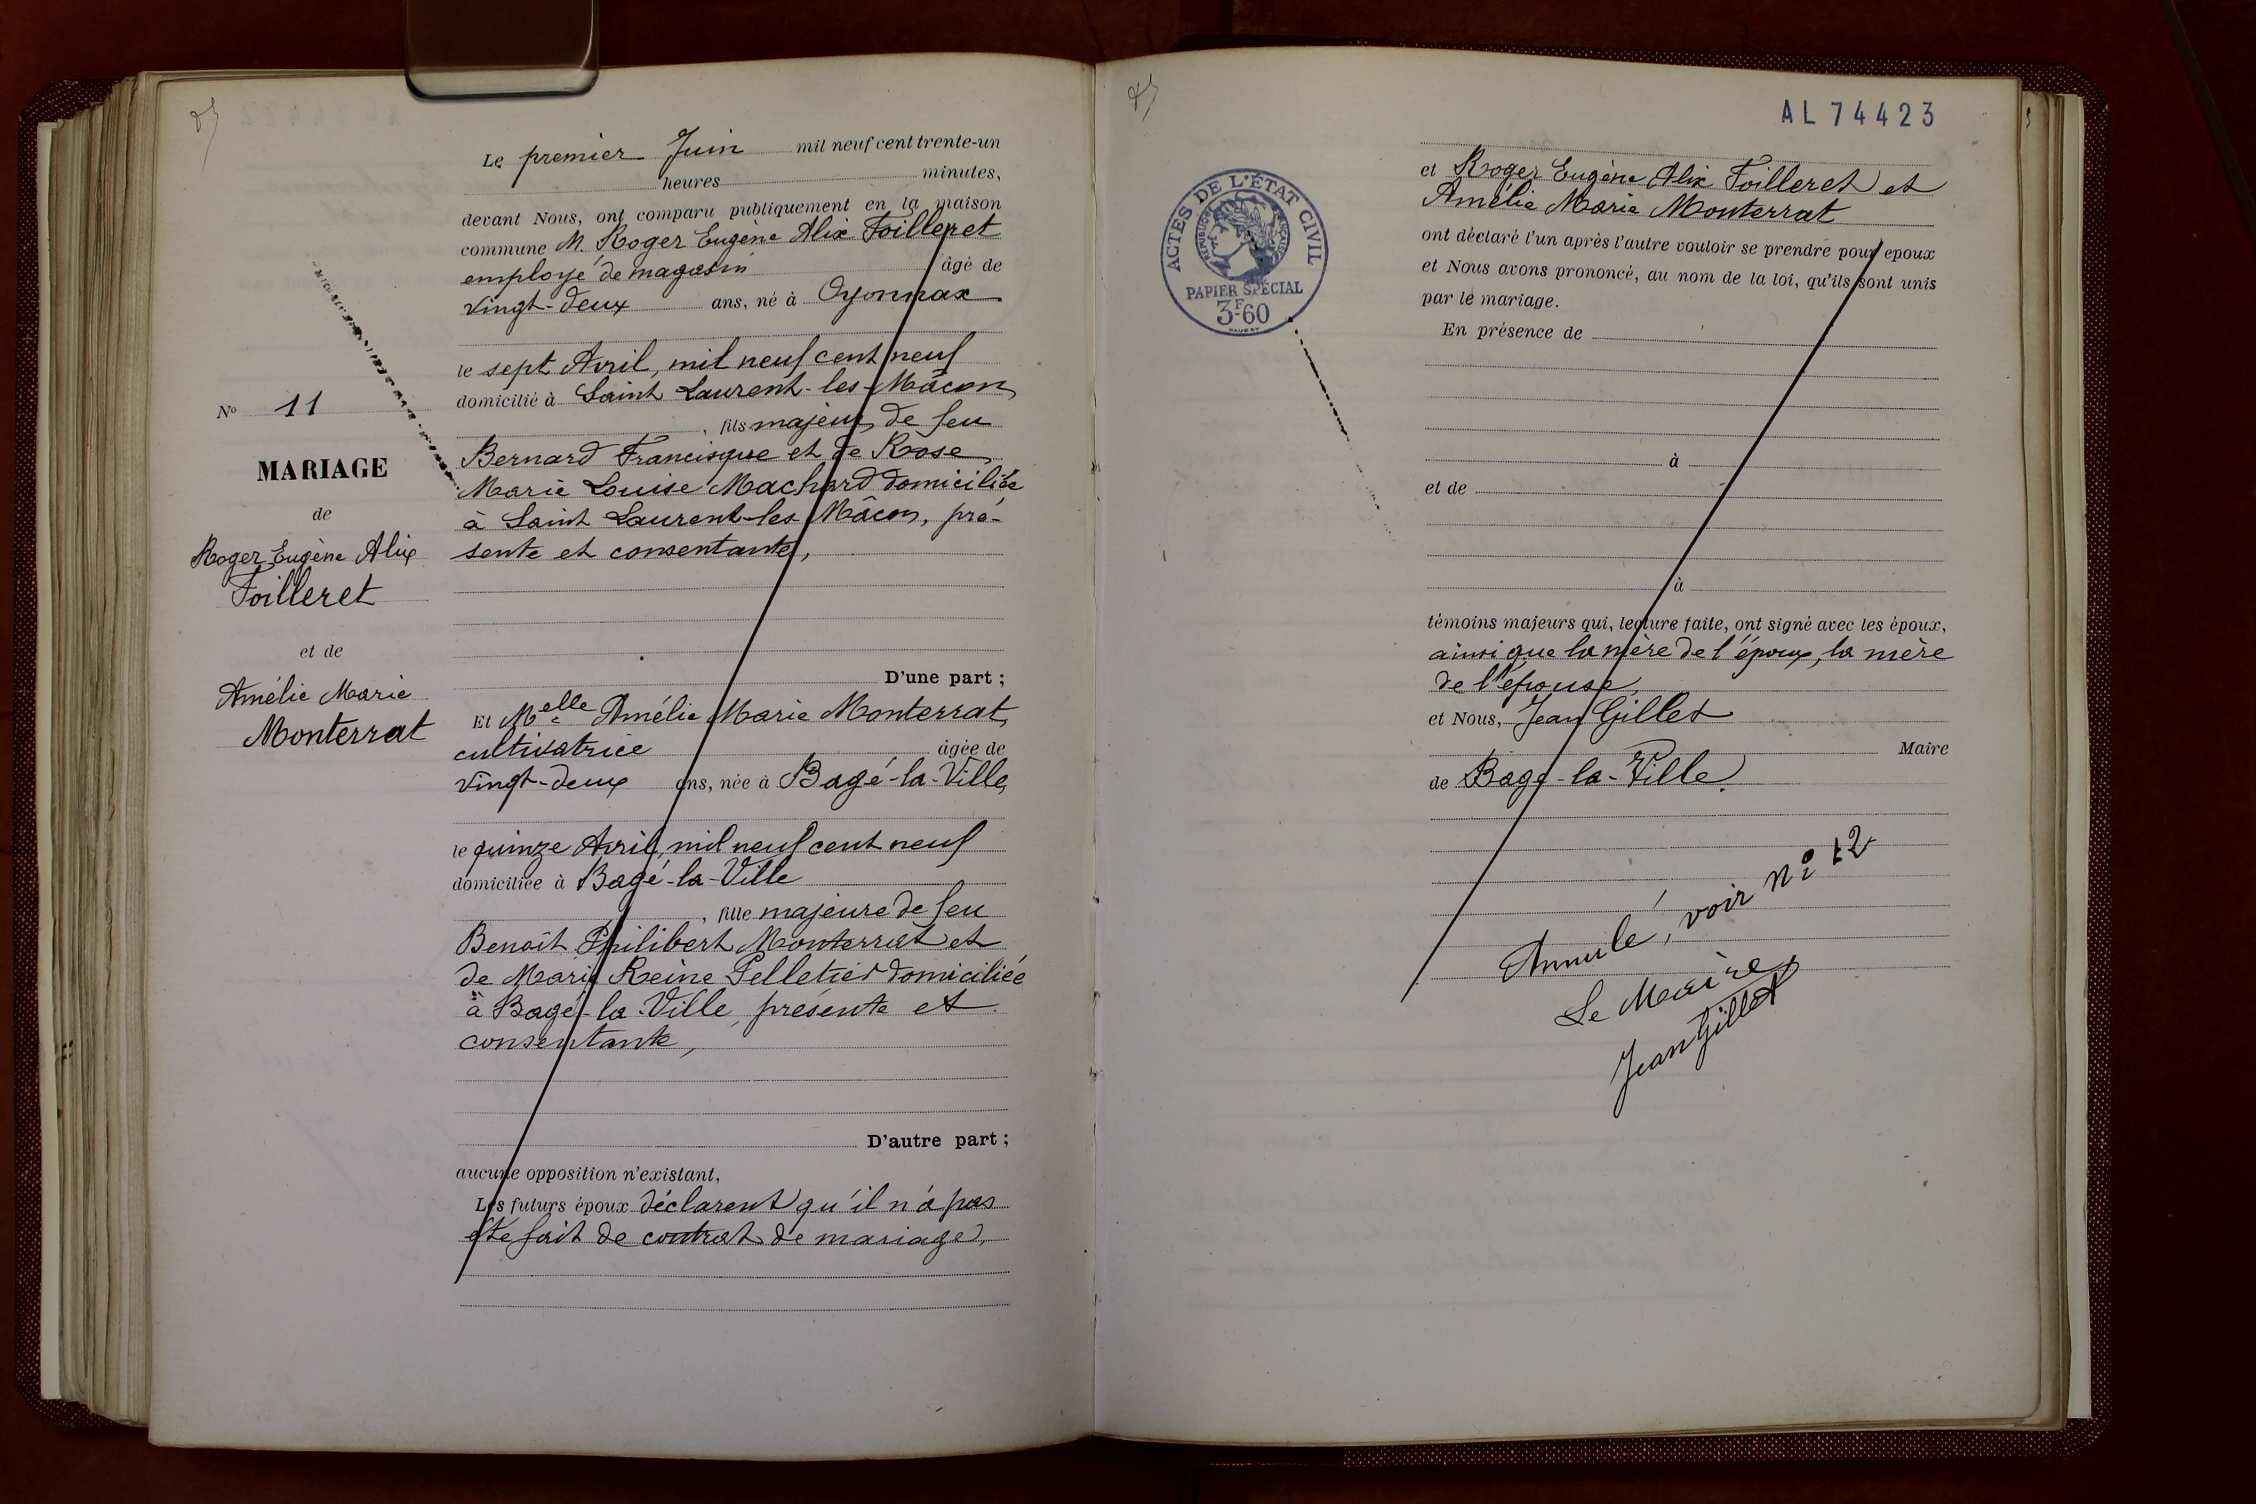 Le premier Juin mil neuf cent trente-un
heures minutes,
devant Nous, ont comparu publiquement en la maison
commune M. Roger Eugène Alix Foilleret
employé de magasin âgé de
vingt-deux ans, né à Oyonnax
le sept Avril, mil neuf cent neuf
domicilié à Saint Laurent-les-Mâcon
, fils majeur de feu
Bernard Francisque et de Rose
Marie Louise Machard domiciliée
à Saint Laurent-les-Mâcon, pré-
sente et consentante,
D'une part ;
Et Melle Amélie Marie Monterrat,
cultivatrice âgée de
vingt-deux ans, née à Bagé-la-Ville,
le quinze Avril, mil neuf cent neuf
domiciliée à Bagé-la-Ville
, fille majeure de feu
Benoît Philibert Monterrat et
de Marie Reine Pelletier domiciliée
à Bagé-la-Ville, présente et
consentante,
D'autre part ;
aucune opposition n'existant,
Les futurs époux déclarent qu'il n'a pas
été fait de contrat de mariage,
No 11
MARIAGE
de
Roger Eugène Alix
Foilleret
et de
Amélie Marie
Monterrat
AL 74423
ACTES DE L'ÉTAT CIVIL
RÉPUBLIQUE FRANÇAISE
PAPIER SPÉCIAL
3F.60
et Roger Eugène Alix Foilleret et
Amélie Marie Monterrat
ont déclaré l'un après l'autre vouloir se prendre pour époux
et Nous avons prononcé, au nom de la loi, qu'ils sont unis
par le mariage.
En présence de
à
et de
à
témoins majeurs qui, lecture faite, ont signé avec les époux,
ainsi que la mère de l'époux, la mère
de l'épouse,
et Nous, Jean Gillet
Maire
de Bagé-la-Ville.
Annulé, voir No 12
Le Maire,
Jean Gillet